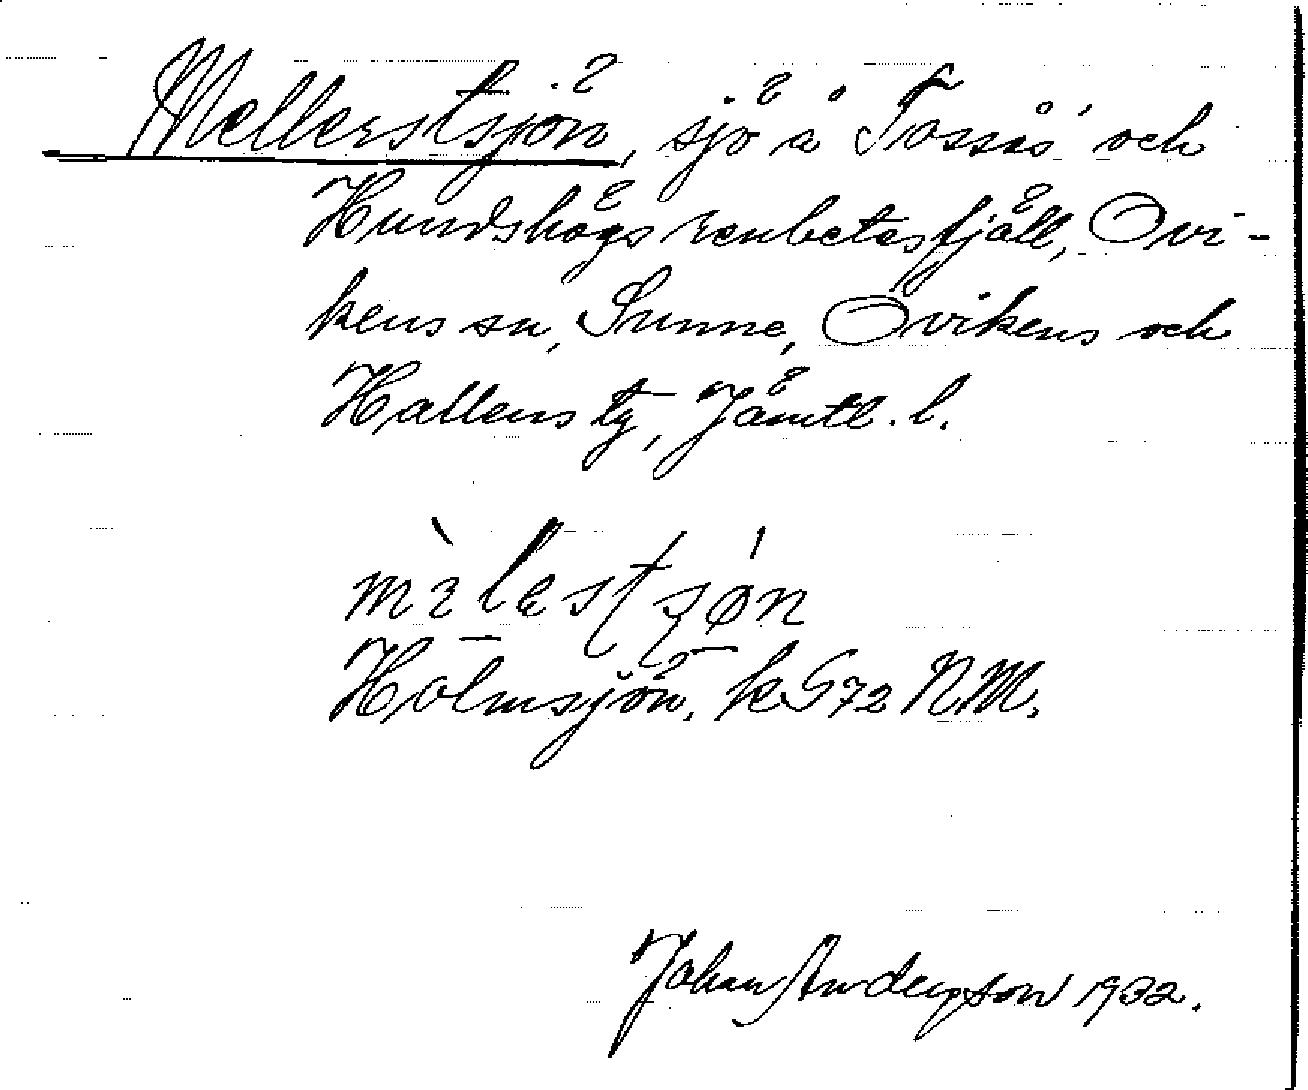 Mellerstsjön, sjö å Tossås och
Hundshögs renbetesfjäll, Ovi-
kens sn, Sunne, Ovikens och
Hallens tg, Jämtl. l.
Holmsjön, k G72 NM.
Johan Anderson 1932.